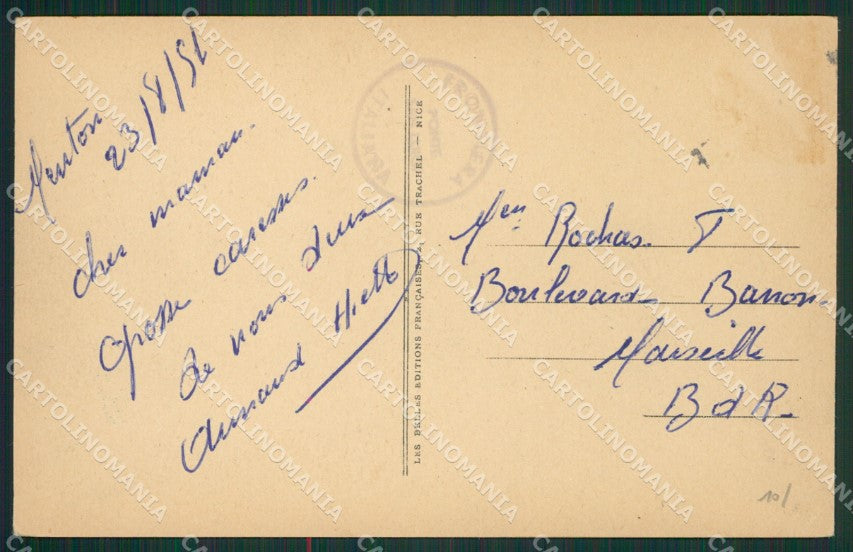 Menton
23/8/51
cher maman.
Grosse caresses.
de nous deux
Armand
Men Rochas. T
Boulevard Banon
Marseille
B d R-
LES BELLES EDITIONS FRANÇAISES, RUE TRACHEL — NICE
FRONTIERA
10/
CARTOLINOMANIA